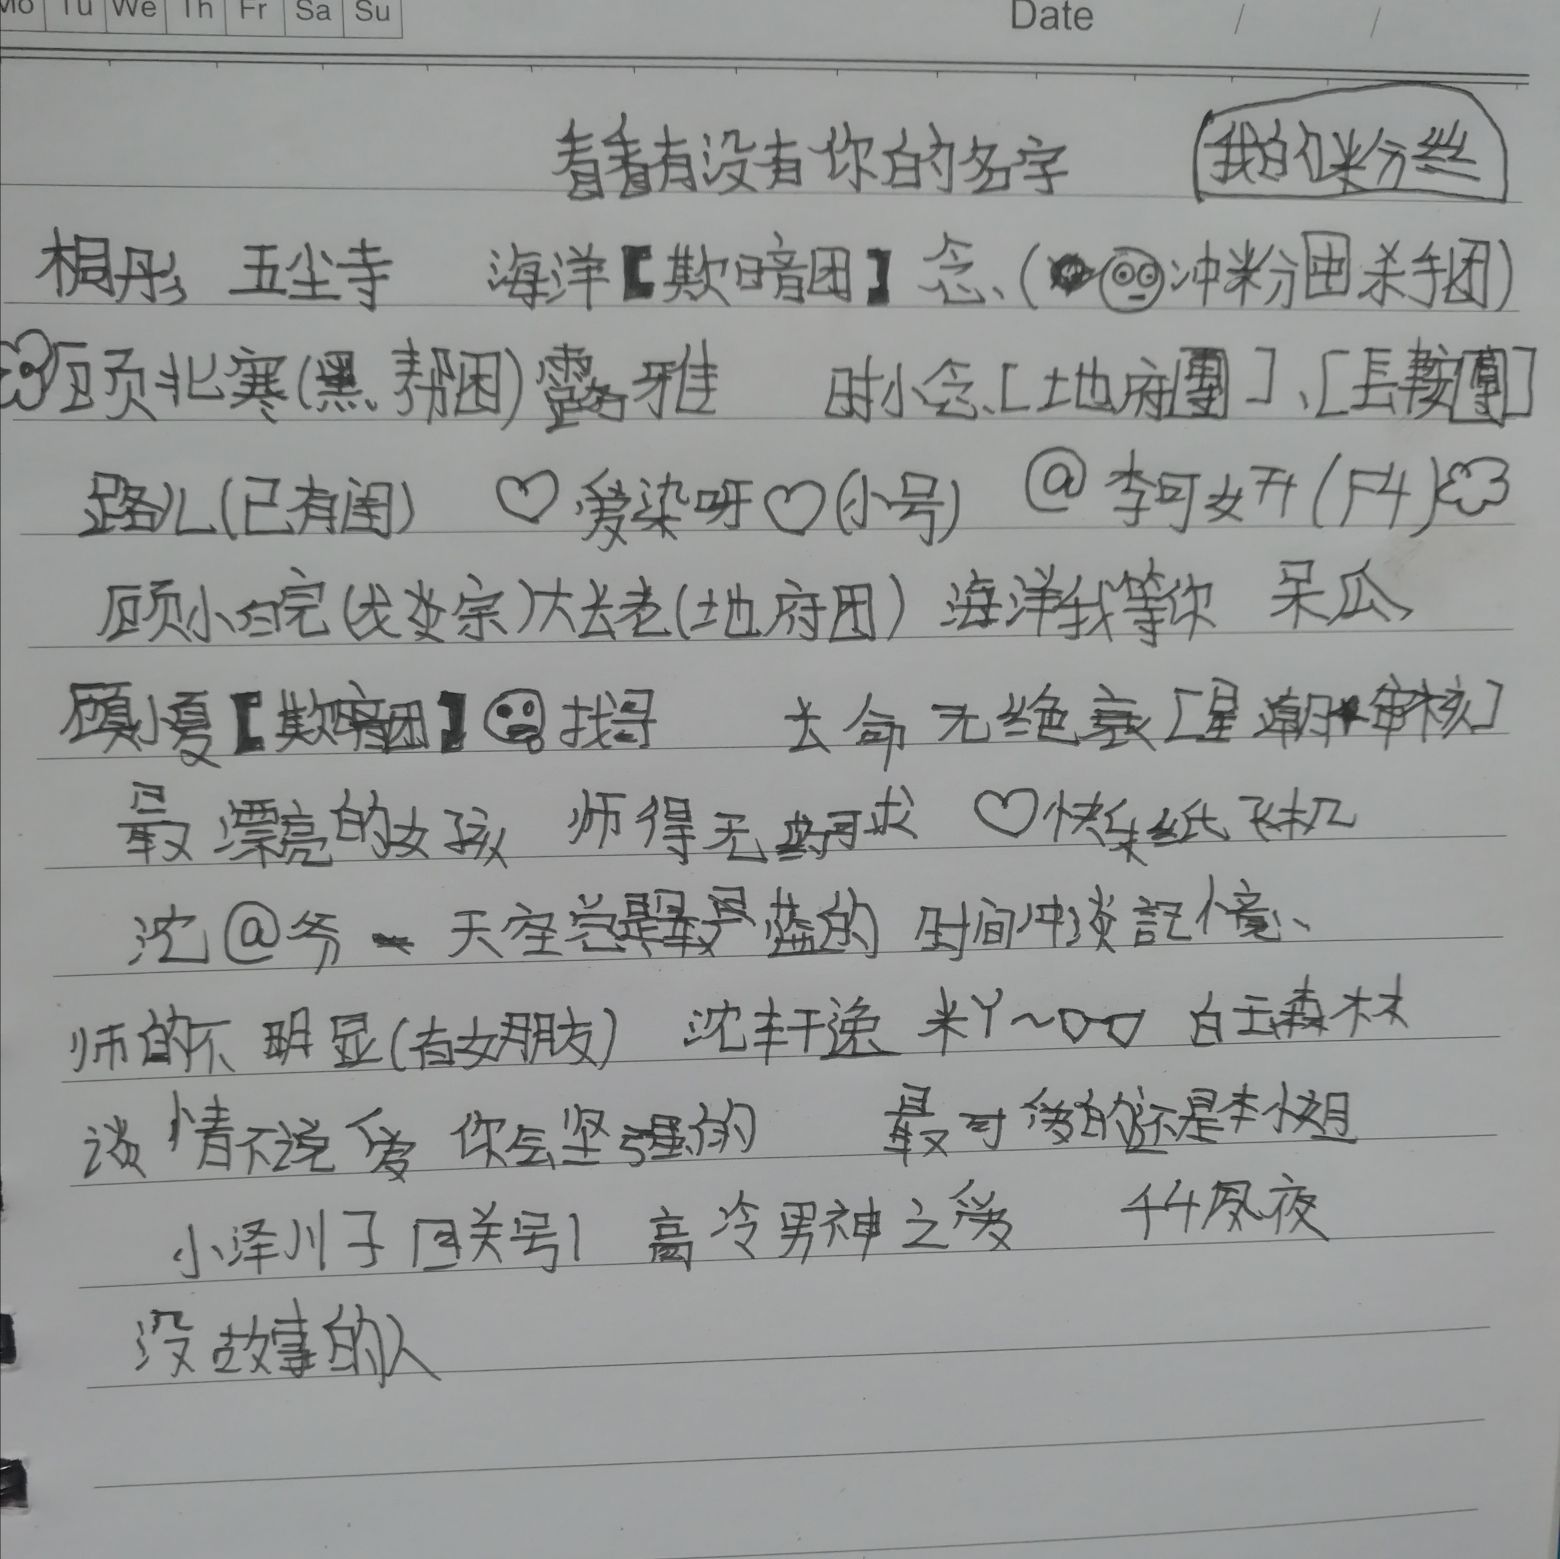 Mo Tu We Th Fr Sa Su Date / /
看看有没有你的名字 我的粉丝
桐彤 五尘寺 海洋【欺暗团】念、(冲粉团杀手团)
顾北寒(黑帮团)露雅 时小念、[地府團]、[長鞍團]
路儿(已有闺) ♡爱染呀♡(小号) @李可妍(F4)
顾小白完(戈娈宗)大长老(地府团) 海洋我等你 呆瓜
顾小夏【欺暗团】找哥 长命无绝衰[星潮审核]
最漂亮的女孩 师得无药可求 ♡快乐纸飞机
沈@爷 天空总是最蓝的 时间冲淡記憶、
师的不明显(有女朋友) 沈丰干逸 米丫~ 白玉森林
谈情不说爱 你会坚强的 最可爱的还是李小姐
小泽川子 回关号1 高冷男神之爱 千千凤夜
没故事的人